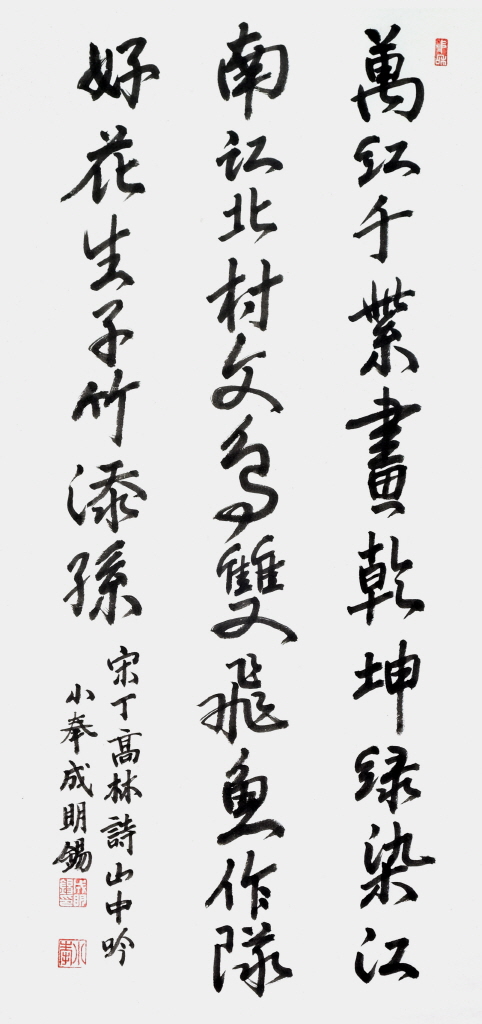 萬紅千紫畫乾坤綠染江
南江北村文鳥雙飛魚作隊
好花生子竹添孫
宋丁高林詩山中吟
小奉成明錫